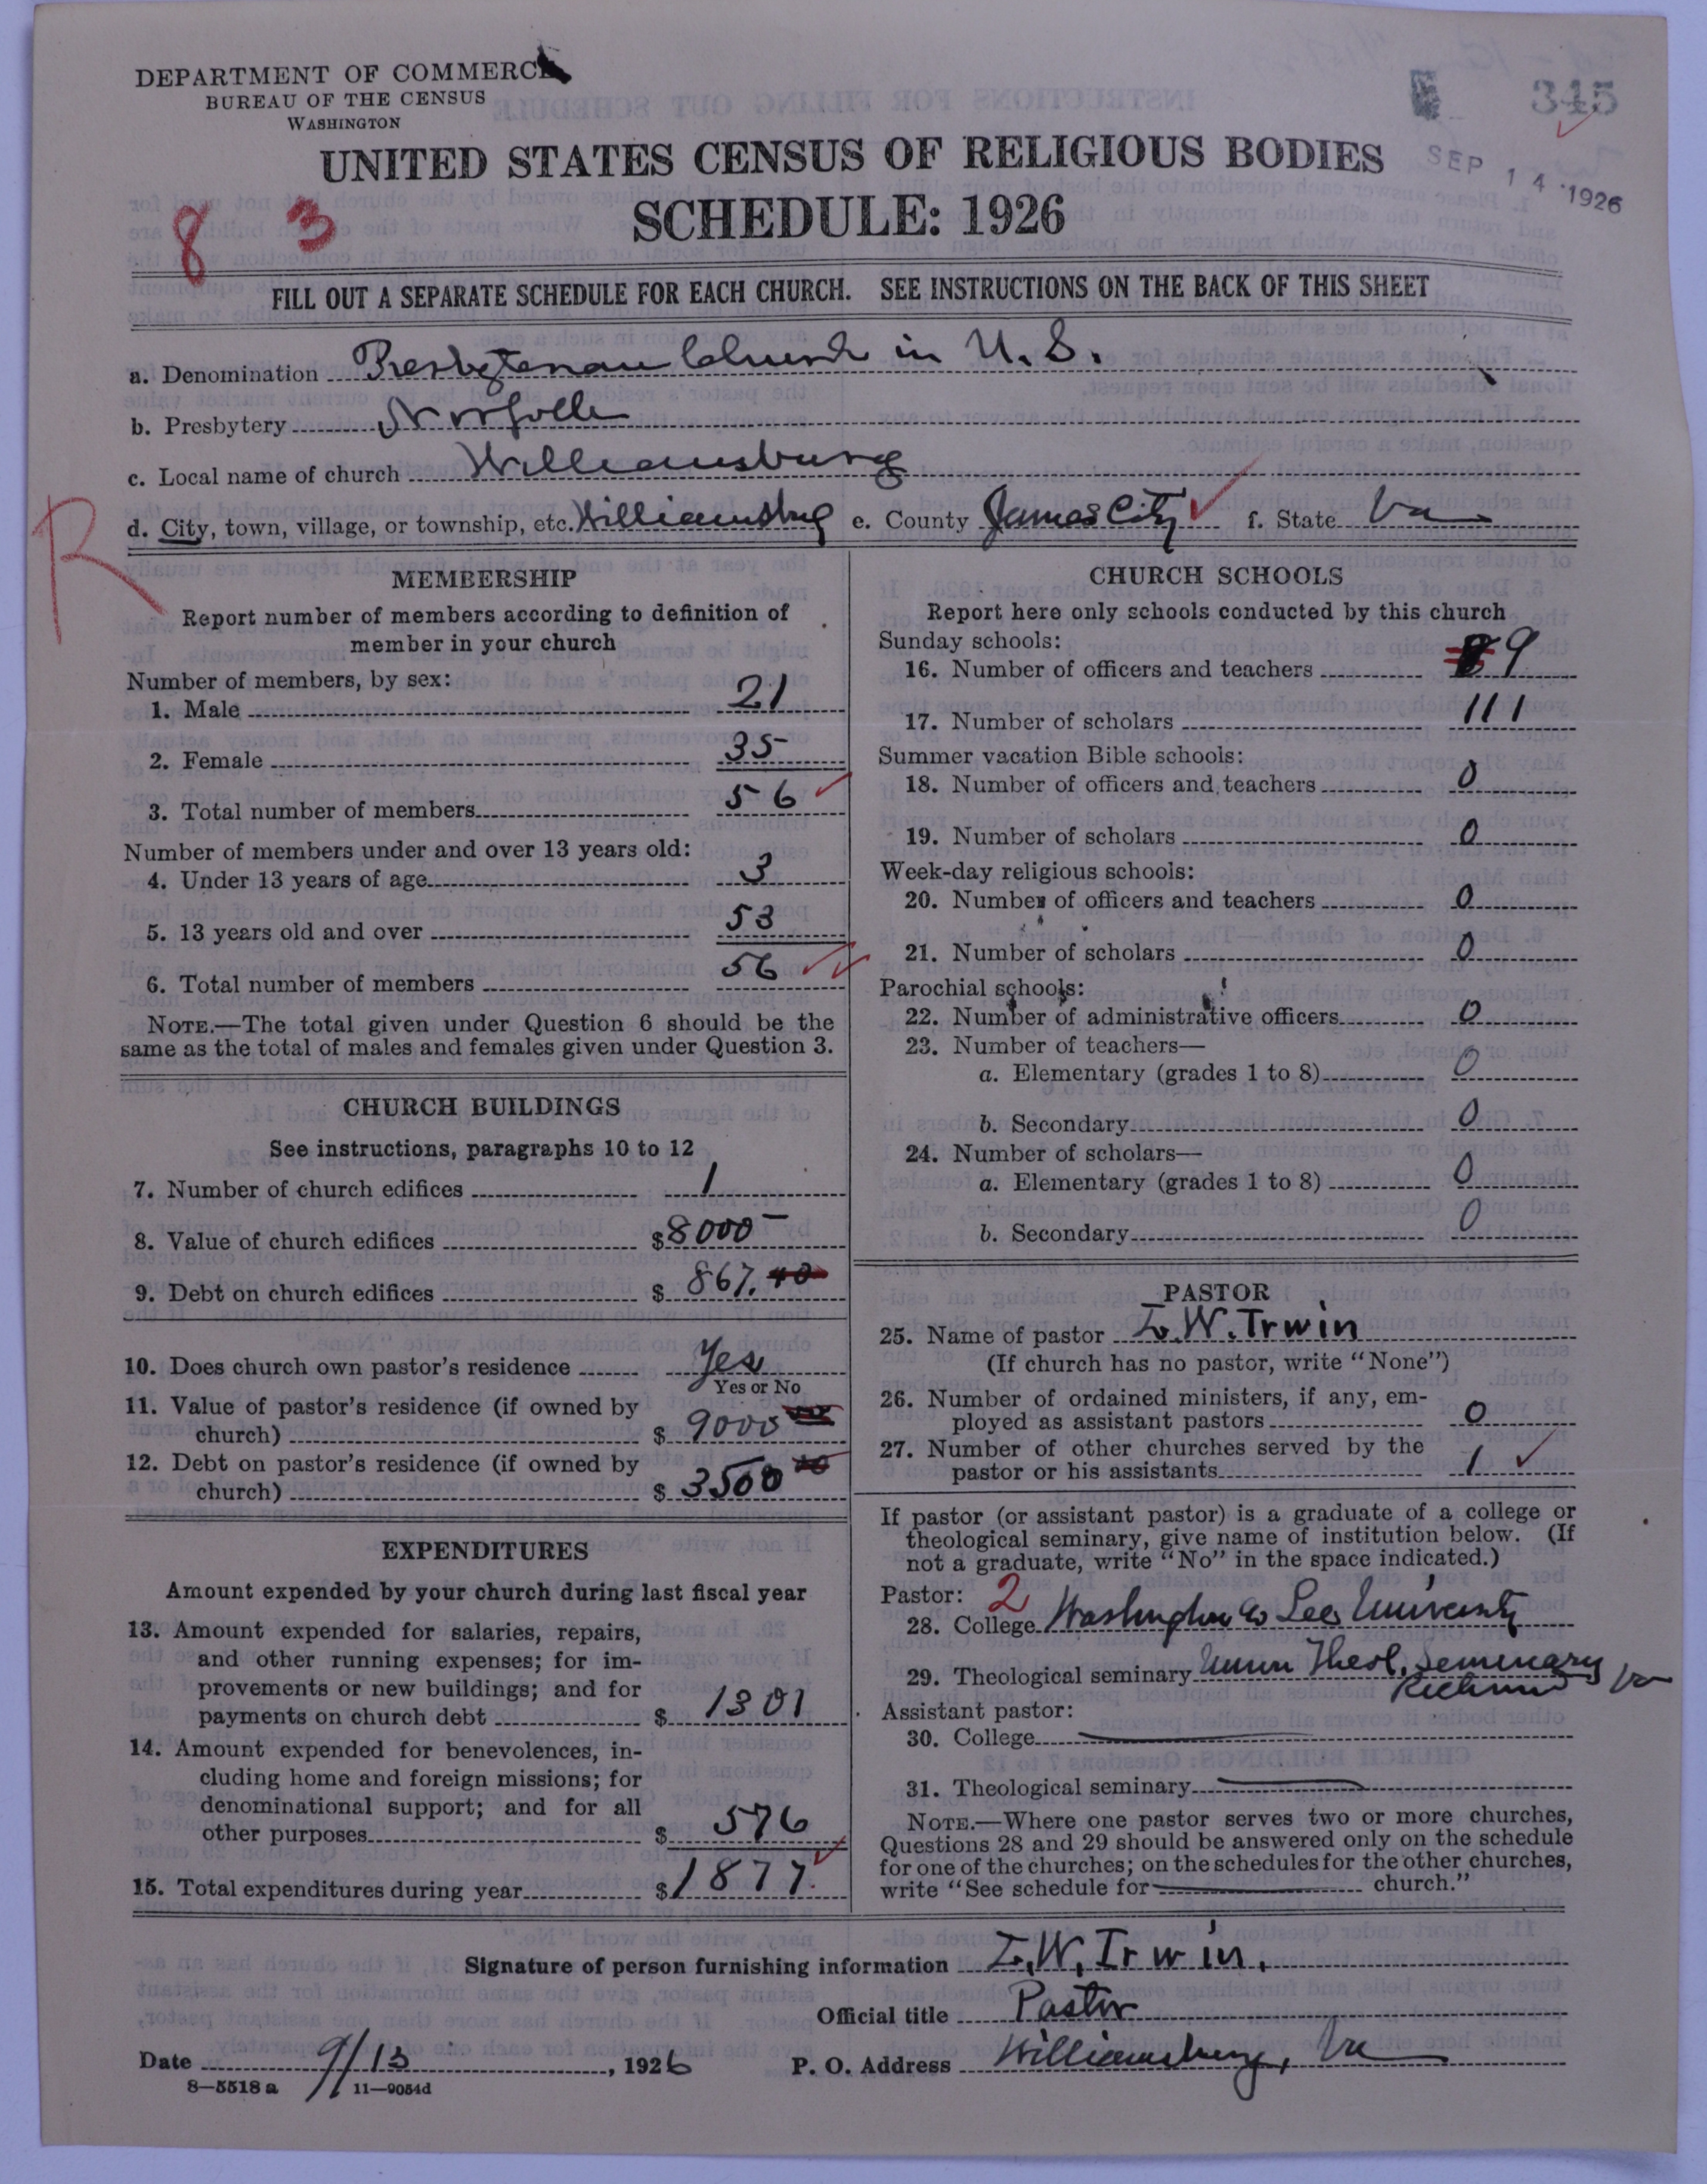 DEPARTMENT OF COMMERCE
BUREAU OF THE CENSUS
WASHINGTON
345
SEP 14 1926
UNITED STATES CENSUS OF RELIGIOUS BODIES
SCHEDULE: 1926
8 3
FILL OUT A SEPARATE SCHEDULE FOR EACH CHURCH. SEE INSTRUCTIONS ON THE BACK OF THIS SHEET
a. Denomination Presbyterian Church in U. S.
b. Presbytery Norfolk
c. Local name of church Williamsburg
d. City, town, village, or township, etc. Williamsburg e. County James City f. State Va
R
MEMBERSHIP
Report number of members according to definition of
member in your church
Number of members, by sex:
1. Male 21
2. Female 35
3. Total number of members 56
Number of members under and over 13 years old:
4. Under 13 years of age 3
5. 13 years old and over 53
6. Total number of members 56
NOTE.—The total given under Question 6 should be the
same as the total of males and females given under Question 3.
CHURCH BUILDINGS
See instructions, paragraphs 10 to 12
7. Number of church edifices 1
8. Value of church edifices $8000
9. Debt on church edifices $867.40
10. Does church own pastor's residence Yes
Yes or No
11. Value of pastor's residence (if owned by
church) $9000
12. Debt on pastor's residence (if owned by
church) $3500
EXPENDITURES
Amount expended by your church during last fiscal year
13. Amount expended for salaries, repairs,
and other running expenses; for im-
provements or new buildings; and for
payments on church debt $1301
14. Amount expended for benevolences, in-
cluding home and foreign missions; for
denominational support; and for all
other purposes $576
15. Total expenditures during year $1877.
CHURCH SCHOOLS
Report here only schools conducted by this church
Sunday schools:
16. Number of officers and teachers 9
17. Number of scholars 111
Summer vacation Bible schools:
18. Number of officers and teachers 0
19. Number of scholars 0
Week-day religious schools:
20. Number of officers and teachers 0
21. Number of scholars 0
Parochial schools:
22. Number of administrative officers 0
23. Number of teachers—
a. Elementary (grades 1 to 8) 0
b. Secondary 0
24. Number of scholars—
a. Elementary (grades 1 to 8) 0
b. Secondary 0
PASTOR
25. Name of pastor W. Irwin
(If church has no pastor, write "None")
26. Number of ordained ministers, if any, em-
ployed as assistant pastors 0
27. Number of other churches served by the
pastor or his assistants 1
If pastor (or assistant pastor) is a graduate of a college or
theological seminary, give name of institution below. (If
not a graduate, write "No" in the space indicated.)
Pastor: 2
28. College Washington & Lee University
29. Theological seminary Union Theol. Seminary
Richmond Va
Assistant pastor:
30. College
31. Theological seminary
NOTE.—Where one pastor serves two or more churches,
Questions 28 and 29 should be answered only on the schedule
for one of the churches; on the schedules for the other churches,
write "See schedule for church."
Signature of person furnishing information W. Irwin.
Official title Pastor
Date 9/13, 1926 P. O. Address Williamsburg, Va
8—5518 a 11—9054d